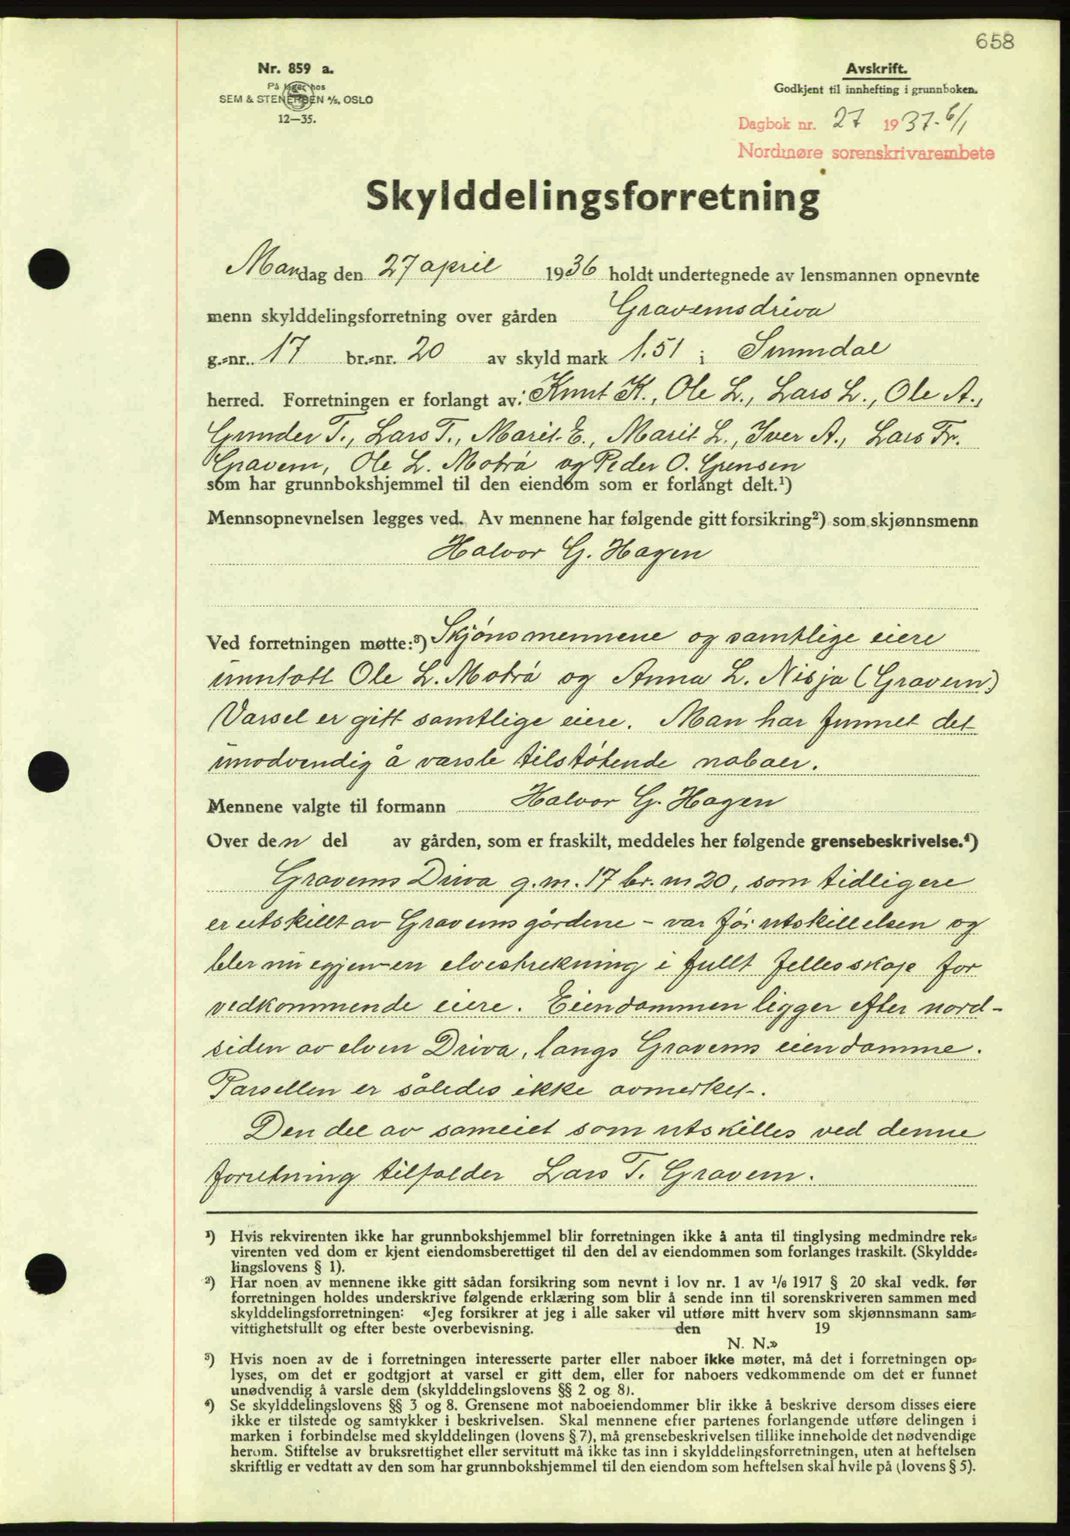 658
Nr. 859 a.
På lager hos
SEM & STENERSEN A/S, OSLO
12—35.
Avskrift.
Godkjent til innhefting i grunnboken.
Dagbok nr. 27 1937-6/1
Nordmøre sorenskrivarembete
Skylddelingsforretning
Mandag den 27 april 1936 holdt undertegnede av lensmannen opnevnte
menn skylddelingsforretning over gården Gravemsdriva
g.-nr. 17 br.-nr. 20 av skyld mark 1.51 i Sunndal
herred. Forretningen er forlangt av: Knut K., Ole L., Lars L., Ole A.,
Gunder T., Lars T., Marit E., Marit L., Iver A., Lars Fr.
Gravem, Ole L. Mobrå og Peder O. Grensen
som har grunnbokshjemmel til den eiendom som er forlangt delt.¹)
Mennsopnevnelsen legges ved. Av mennene har følgende gitt forsikring²) som skjønnsmenn
Halvor G. Hagen
Ved forretningen møtte:³) Skjønsmennene og samtlige eiere
unntatt Ole L. Mobrå og Anna L. Nisja (Gravem)
Varsel er gitt samtlige eiere. Man har funnet det
unødvendig å varsle tilstøtende naboer.
Mennene valgte til formann Halvor G. Hagen
Over den del av gården, som er fraskilt, meddeles her følgende grensebeskrivelse.⁴)
Gravems Driva g.nr. 17 br.nr 20, som tidligere
er utskillt av Gravemsgårdene - var før utskillelsen og
blev nu igjen en elvestrekning i fullt fellesskap for
vedkommende eiere. Eiendommen ligger efter nord-
siden av elven Driva, langs Gravems eiendomme.
Parsellen er således ikke avmerket.
Den del av sameiet som utskilles ved denne
forretning tilfalder Lars T. Gravem.
¹) Hvis rekvirenten ikke har grunnbokshjemmel blir forretningen ikke å anta til tinglysing medmindre rek-
virenten ved dom er kjent eiendomsberettiget til den del av eiendommen som forlanges fraskilt. (Skyldde-
lingslovens § 1).
²) Har noen av mennene ikke gitt sådan forsikring som nevnt i lov nr. 1 av 1/6 1917 § 20 skal vedk. før
forretningen holdes underskrive følgende erklæring som blir å sende inn til sorenskriveren sammen med
skylddelingsforretningen: «Jeg forsikrer at jeg i alle saker vil utføre mitt hverv som skjønnsmann sam-
vittighetsfullt og efter beste overbevisning. den 19
N. N.»
³) Hvis noen av de i forretningen interesserte parter eller naboer ikke møter, må det i forretningen op-
lyses, om det er godtgjort at varsel er gitt dem, eller for naboers vedkommende om det er funnet
unødvendig å varsle dem (skylddelingslovens §§ 2 og 8).
⁴) Se skylddelingslovens §§ 3 og 8. Grensene mot naboeiendommer blir ikke å beskrive dersom disses eiere
ikke er tilstede og samtykker i beskrivelsen. Skal mennene efter partenes forlangende utføre delingen i
marken i forbindelse med skylddelingen (lovens § 7), må grensebeskrivelsen tillike inneholde det nødvendige
herom. Stiftelse av bruksrettighet eller servitutt må ikke tas inn i skylddelingsforretningen, uten at heftelsen
skriftlig er vedtatt av den som har grunnbokshjemmel til den eiendom som heftelsen skal hvile på (lovens § 5).